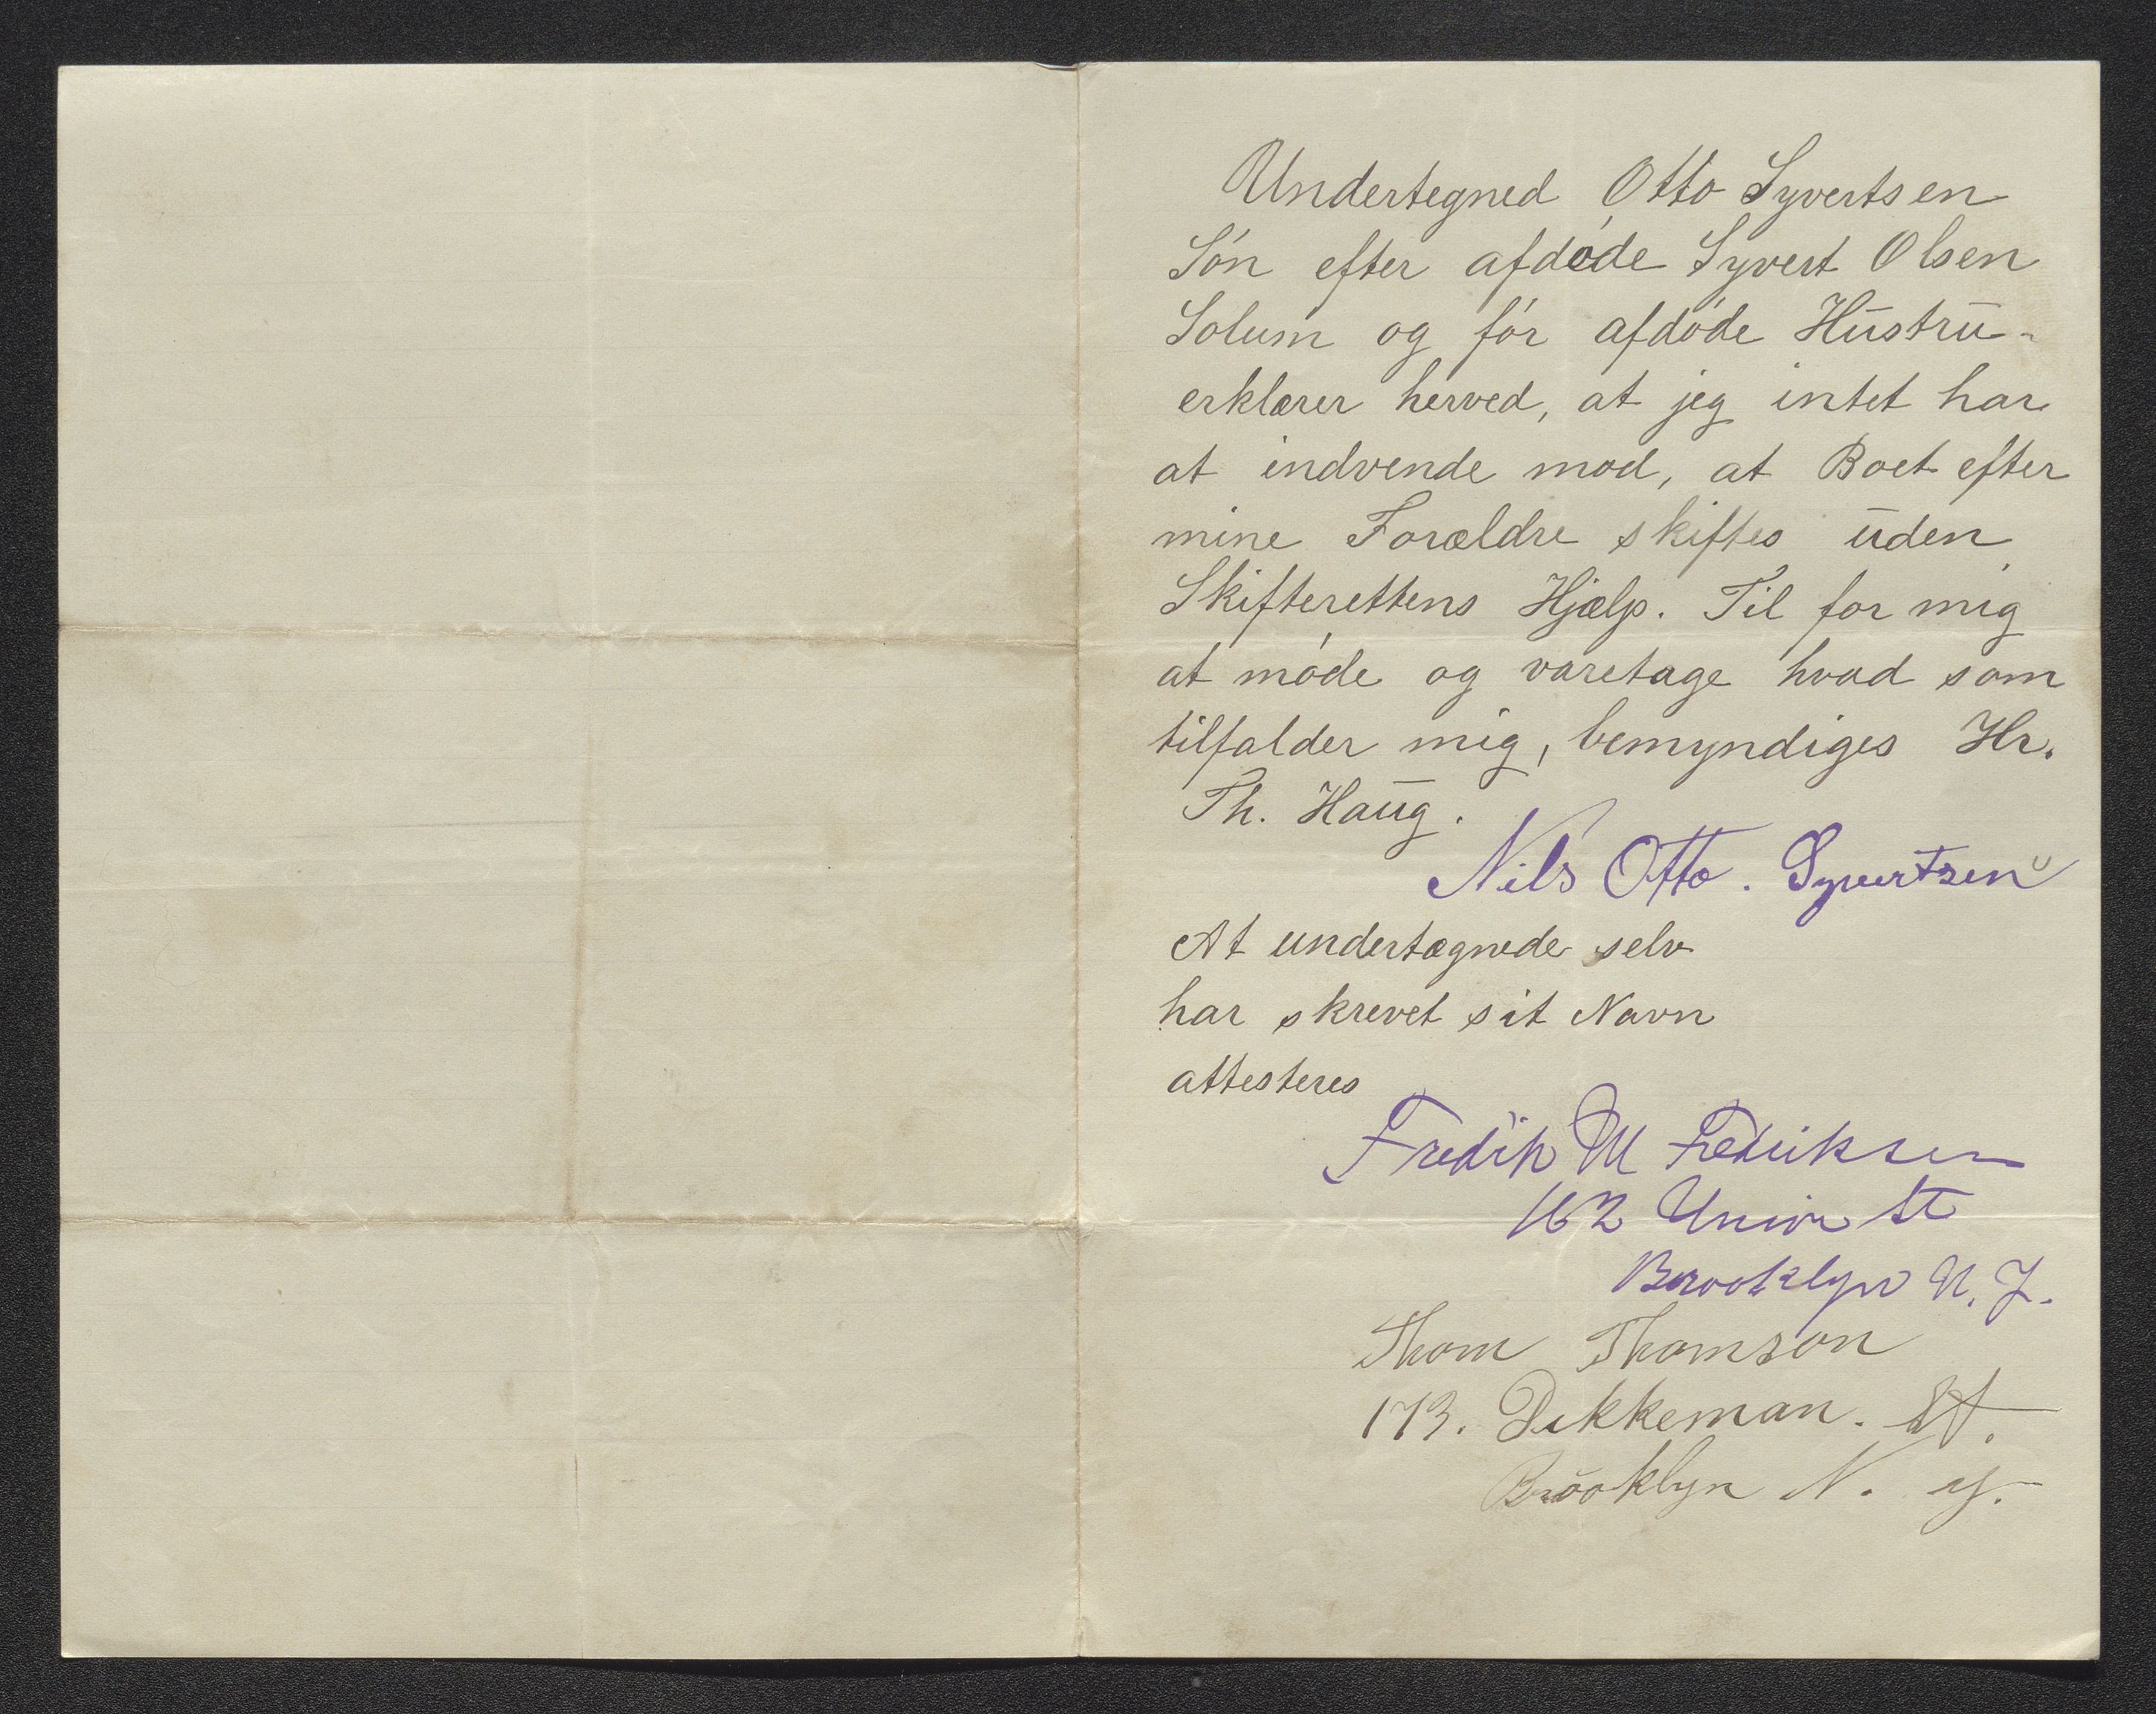 Undertegned Otto Syvertsen
Søn efter afdøde Syvert Olsen
Solum og før afdøde Hustru -
erklærer herved, at jeg intet har
at indvende mod, at Boet efter
mine Forældre skiftes uden
Skifterettens Hjælp. Til for mig
at møde og varetage hvad som
tilfalder mig, bemyndiges Hr.
Th. Haug.
Nils Otto. Syvertsen
At undertegnede selv
har skrevet sit Navn
attesteres
Fredik M Fredriksen
162 Union St
Brooklyn N. Y.
Thom Thomson
173. Dikkeman. St.
Brooklyn N. y.